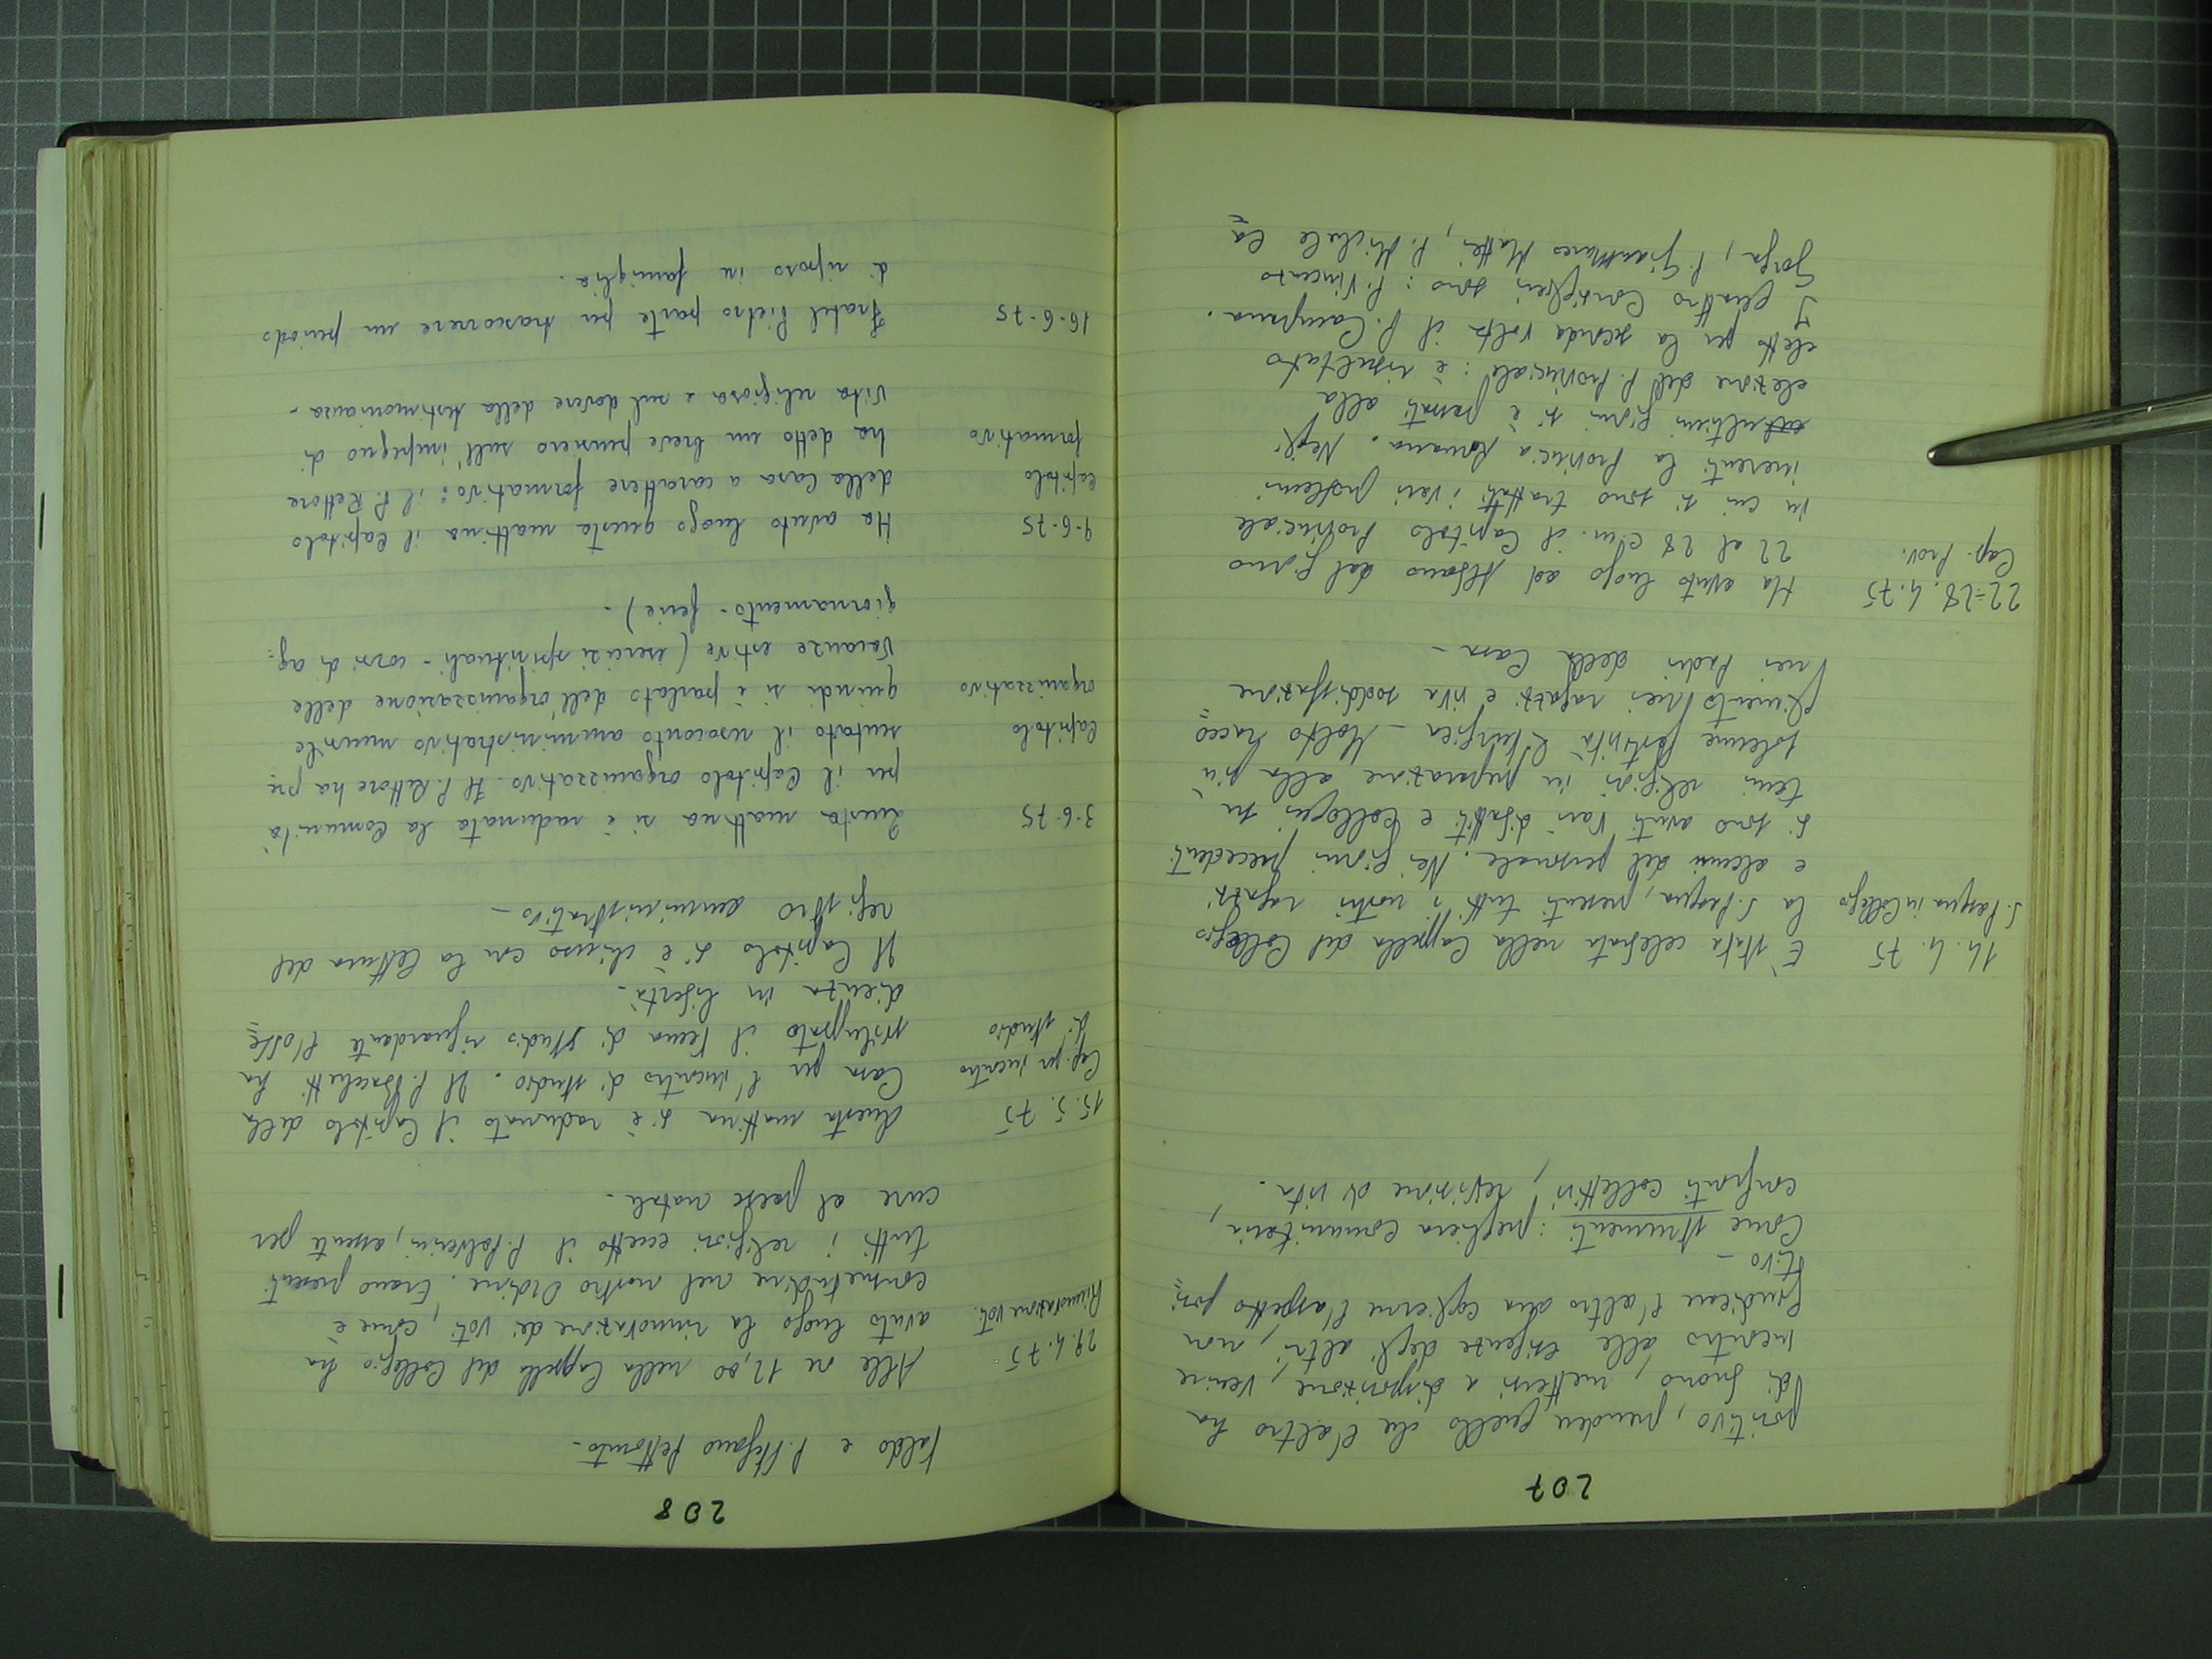 207
positivo, prendere quello che l'altro ha
di buono, mettersi a disposizione, venire
incontro alle esigenze degli altri, non
giudicare l'altro ma coglierne l'aspetto posi=
tivo -
Come strumenti: preghiera comunitaria,
confronti collettivi, revisione di vita.
14. 4. 75
S. Pasqua in Collegio
E' stata celebrata nella Cappella del Collegio
la S. Pasqua, presenti tutti i nostri ragazzi
e alcuni del personale. Nei giorni precedenti
si sono avuti vari dibattiti e colloqui su
temi religiosi in preparazione alla più
solenne festività liturgica - Molto racco=
glimento nei ragazzi e viva soddisfazione
nei Padri della Casa -
22=28. 4. 75
Cap. Prov.
Ha avuto luogo ad Albano dal giorno
22 al 28 c.m. il Capitolo Provinciale
in cui si sono trattati i vari problemi
inerenti la Provincia Romana. Negli
ultimi giorni si è passati alla
elezione del P. Provinciale: è risultato
eletto per la seconda volta il P. Campana.
I quattro Consiglieri sono: P. Vincenzo
Gorga, P. GianMarco Mattei, P. Michele Ca=
208
taldo e P. Stefano Pettoruto -
29. 4. 75
Rinnovazione voti.
Alle ore 12,00 nella Cappella del Collegio ha
avuto luogo la rinnovazione dei voti, come è
consuetudine nel nostro Ordine. Erano presenti
tutti i religiosi eccetto il P. Polverini, assente per
cure al paese natale -
15. 5. 75
Cap. per incontro
di studio
Questa mattina si è radunato il Capitolo della
Casa per l'incontro di studio. Il P. Bracchetti ha
sviluppato il tema di studio riguardante l'obbe=
dienza in libertà -
Il Capitolo si è chiuso con la lettura del
registro amministrativo -
3-6-75
Capitolo
organizzativo
Questa mattina si è radunata la Comunità
per il Capitolo organizzativo. Il P. Rettore ha pre=
sentato il resoconto amministrativo mensile
quindi si è parlato dell'organizzazione delle
vacanze estive (esercizi spirituali - corsi di ag=
giornamento - ferie) -
9-6-75
Capitolo
formativo
Ha avuto luogo questa mattina il Capitolo
della Casa a carattere formativo: il P. Rettore
ha detto un breve pensiero sull'impegno di
vita religiosa e sul dovere della testimonianza -
16-6-75
Fratel Pietro parte per trascorrere un periodo
di riposo in famiglia.